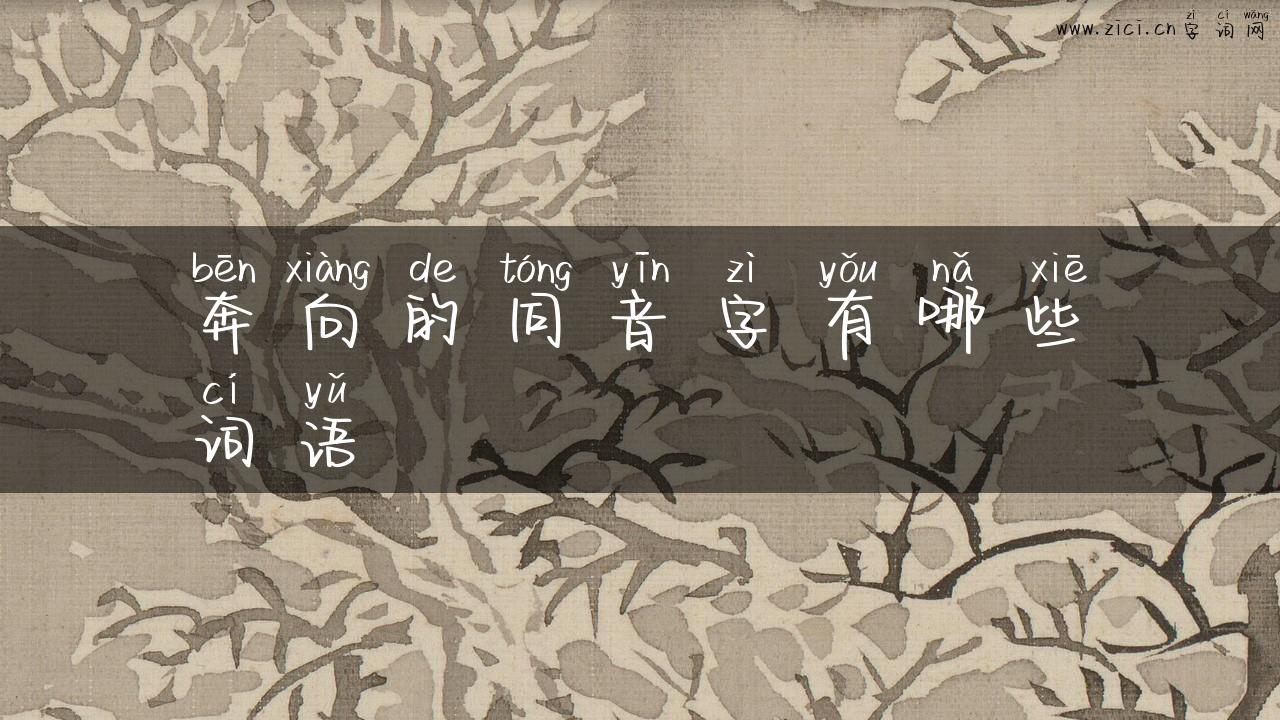 zì cí wǎng
www.zici.cn字词网
bēn xiàng de tóng yīn zì yǒu nǎ xiē
奔向的同音字有哪些
cí yǔ
词语